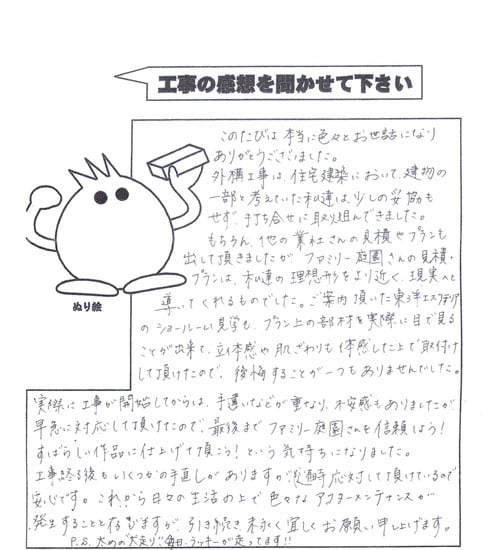 工事の感想を聞かせて下さい
このたびは本当に色々とお世話になり
ありがとうございました。
外構工事は、住宅建築において、建物の
一部と考えていた私達は、少しの妥協も
せず、打ち合せに取り組んできました。
もちろん、他の業社さんの見積やプランも
出して頂きましたが、ファミリー庭園さんの見積・
プランは、私達の理想形をより近く、現実へと
導いてくれるものでした。ご案内頂いた東洋エクステリア
のショールーム見学も、プラン上の部材を実際に目で見る
ことが出来て、立体感や肌ざわりも体感した上で取付け
して頂けたので、後悔することが一つもありませんでした。
ぬり絵
実際に工事が開始してからは、手違いなどが重なり、不安感もありましたが
早急に対応して頂けたので、最後までファミリー庭園さんを信頼しよう!
すばらしい作品に仕上げて頂こう!という気持ちになりました。
工事終了後もいくつかの手直しがありますが、応対して頂けているので
安心です。これから日々の生活の上で色々なアフターメンテナンスが
発生することと存じますが、引き続き末永く宜しくお願い申し上げます。
P.S. 太めの"犬走り"毎日、ラッキーが走ってます!!